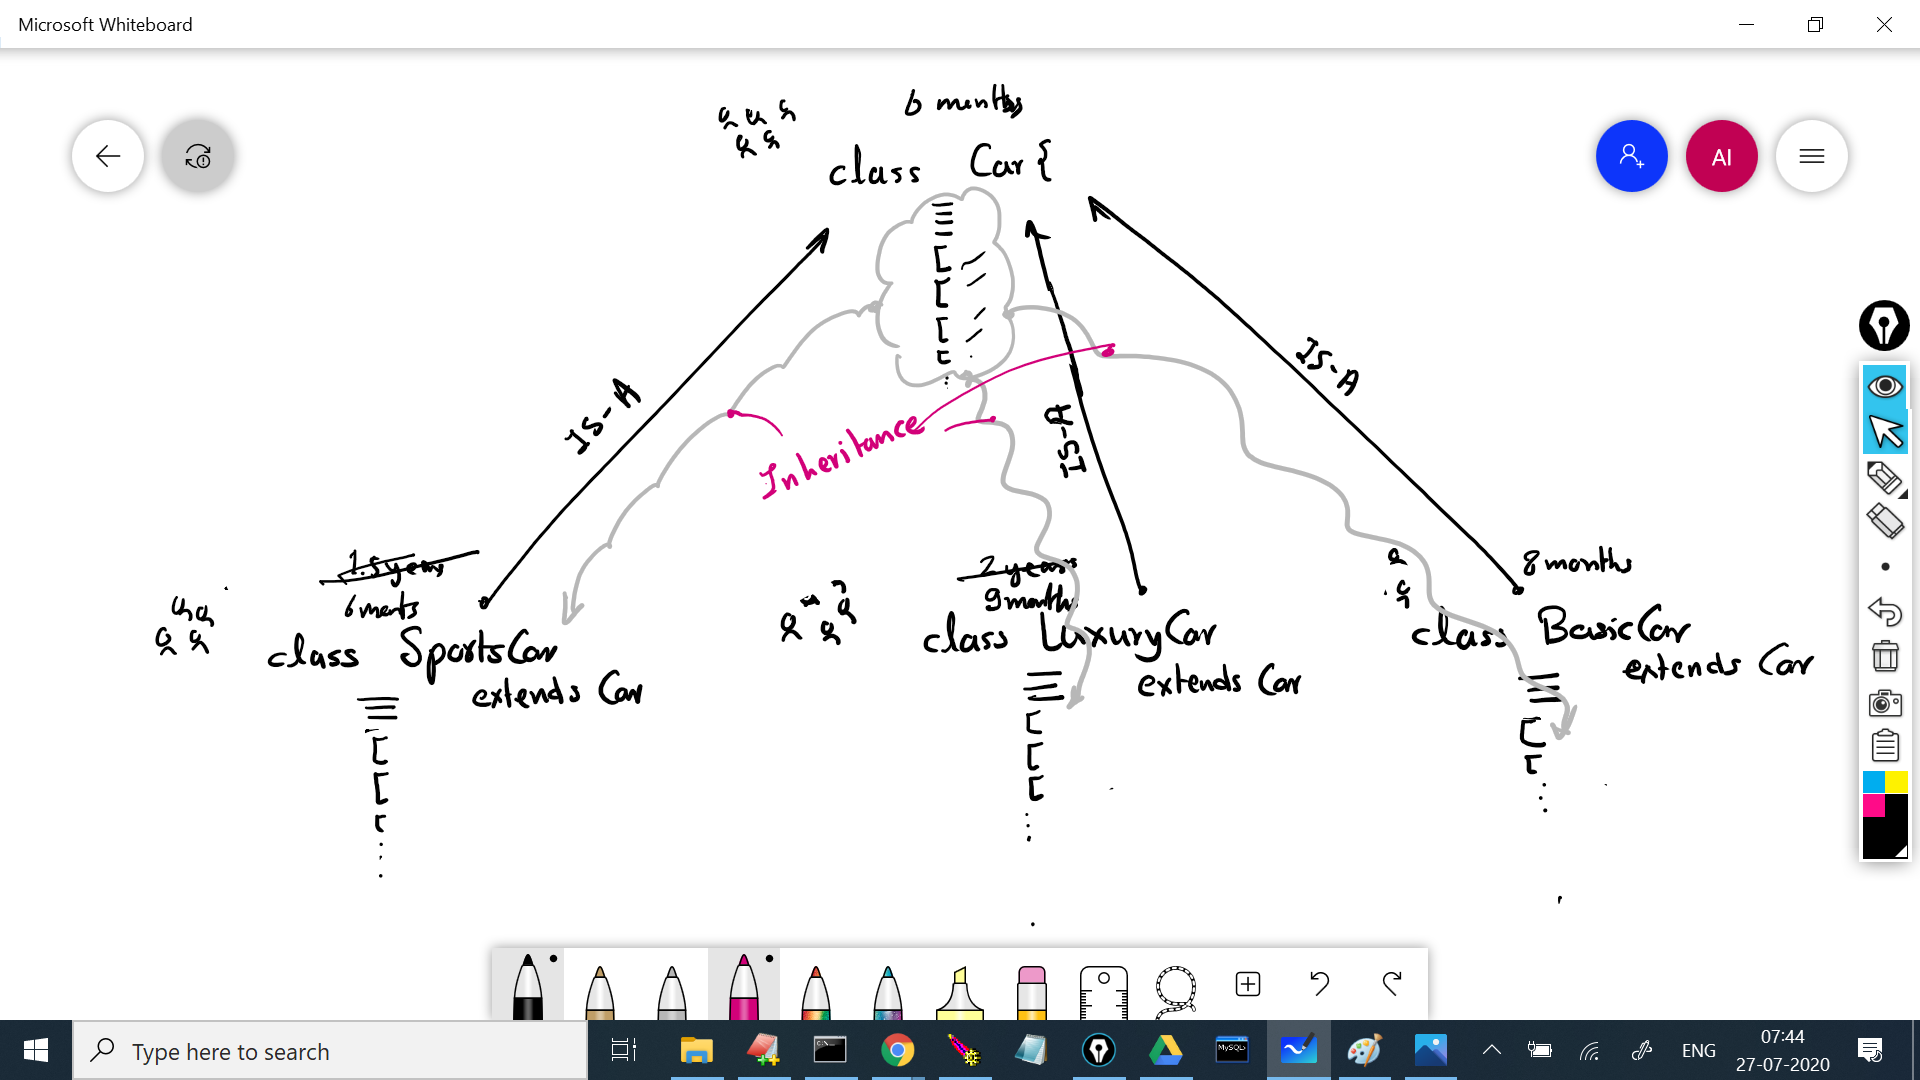 Microsoft Whiteboard
6 months
class Car {
AI
IS-A
IS-A
IS-A
Inheritance
1.5 years
6 monts
class SportsCar
extends Car
2 years
9 months
class LuxuryCar
extends Car
8 months
class BasicCar
extends Car
Type here to search
C:\
MySQL
ENG
07:44
27-07-2020